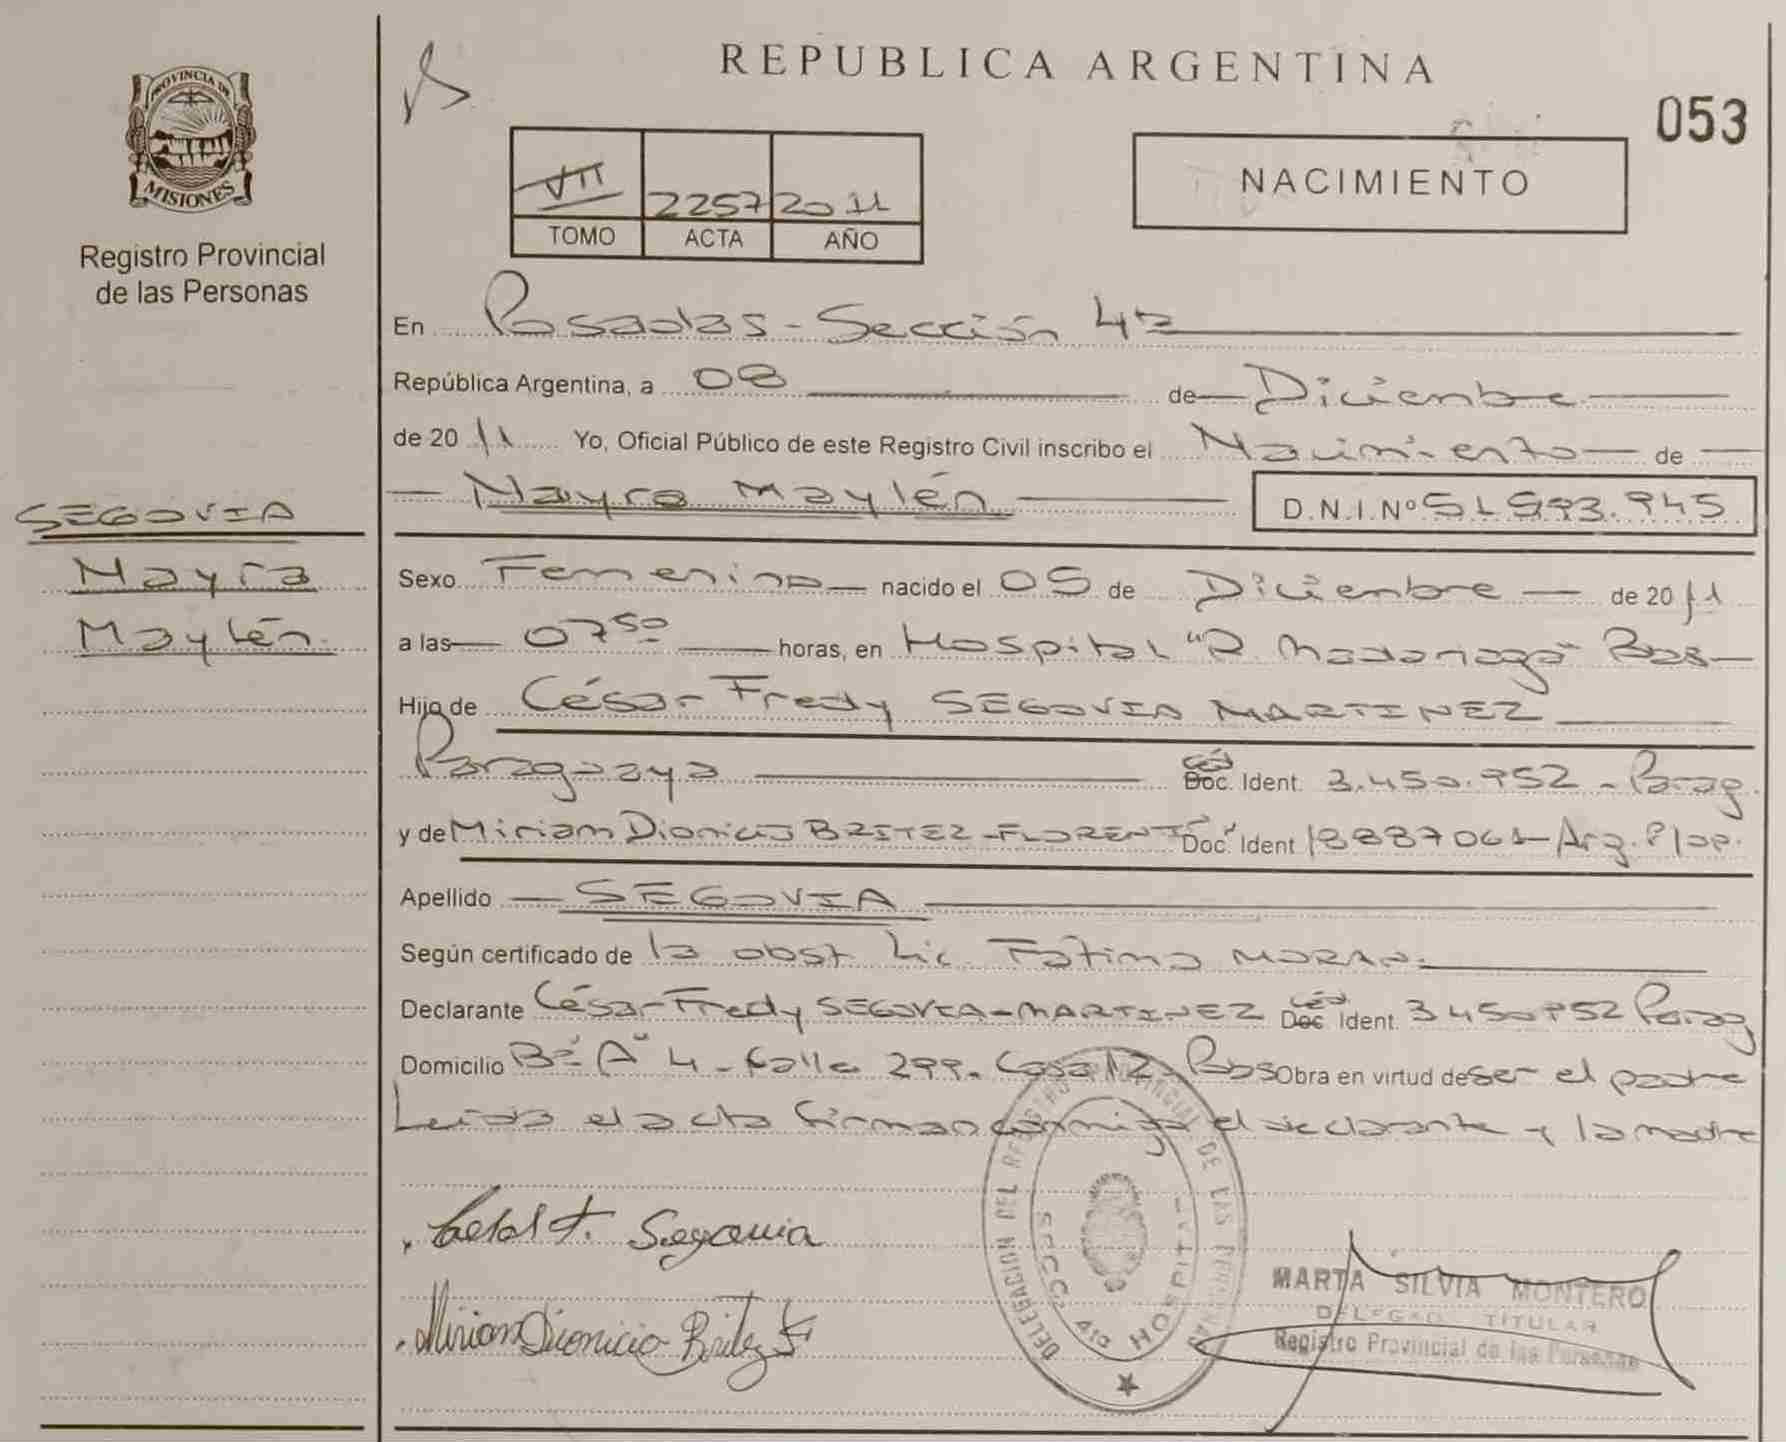 REPUBLICA ARGENTINA
053
PROVINCIA DE
MISIONES
Registro Provincial
de las Personas
VII 2257 2011
TOMO ACTA AÑO
NACIMIENTO
En Posadas - Sección 4ª
República Argentina, a 08 de Diciembre
de 2011 Yo, Oficial Público de este Registro Civil inscribo el Nacimiento de
Mayra Maylén D.N.I.Nº 51.593.945
SEGOVIA
Mayra
Maylén.
Sexo Femenino nacido el 05 de Diciembre de 2011
a las 07 50 horas, en Hospital "R. Madariaga" Pos
Hijo de César Fredy SEGOVIA MARTINEZ
Paraguaya Céd Doc. Ident. 3.450.952 - Parag.
y de Miriam Dionicia BRITEZ - FLORENTÍN Doc. Ident 18887061 - Arg. P/op.
Apellido SEGOVIA
Según certificado de la obst. Lic. Fátima MORAN.
Declarante César Fredy SEGOVIA - MARTINEZ Céd Doc Ident. 3450952 Parag
Domicilio Bº "A" 4 - Calle 299. Casa 12. Pos Obra en virtud de ser el padre
Leída el acta firman conmigo el declarante y la madre
F. Segovia
Mirian Dionicia Britez F
DELEGACION DEL REGISTRO PROVINCIAL DE LAS PERSONAS
SECC. 4ta HOSPITAL
MARTA SILVIA MONTERO
DELEGADO TITULAR
Registro Provincial de las Personas